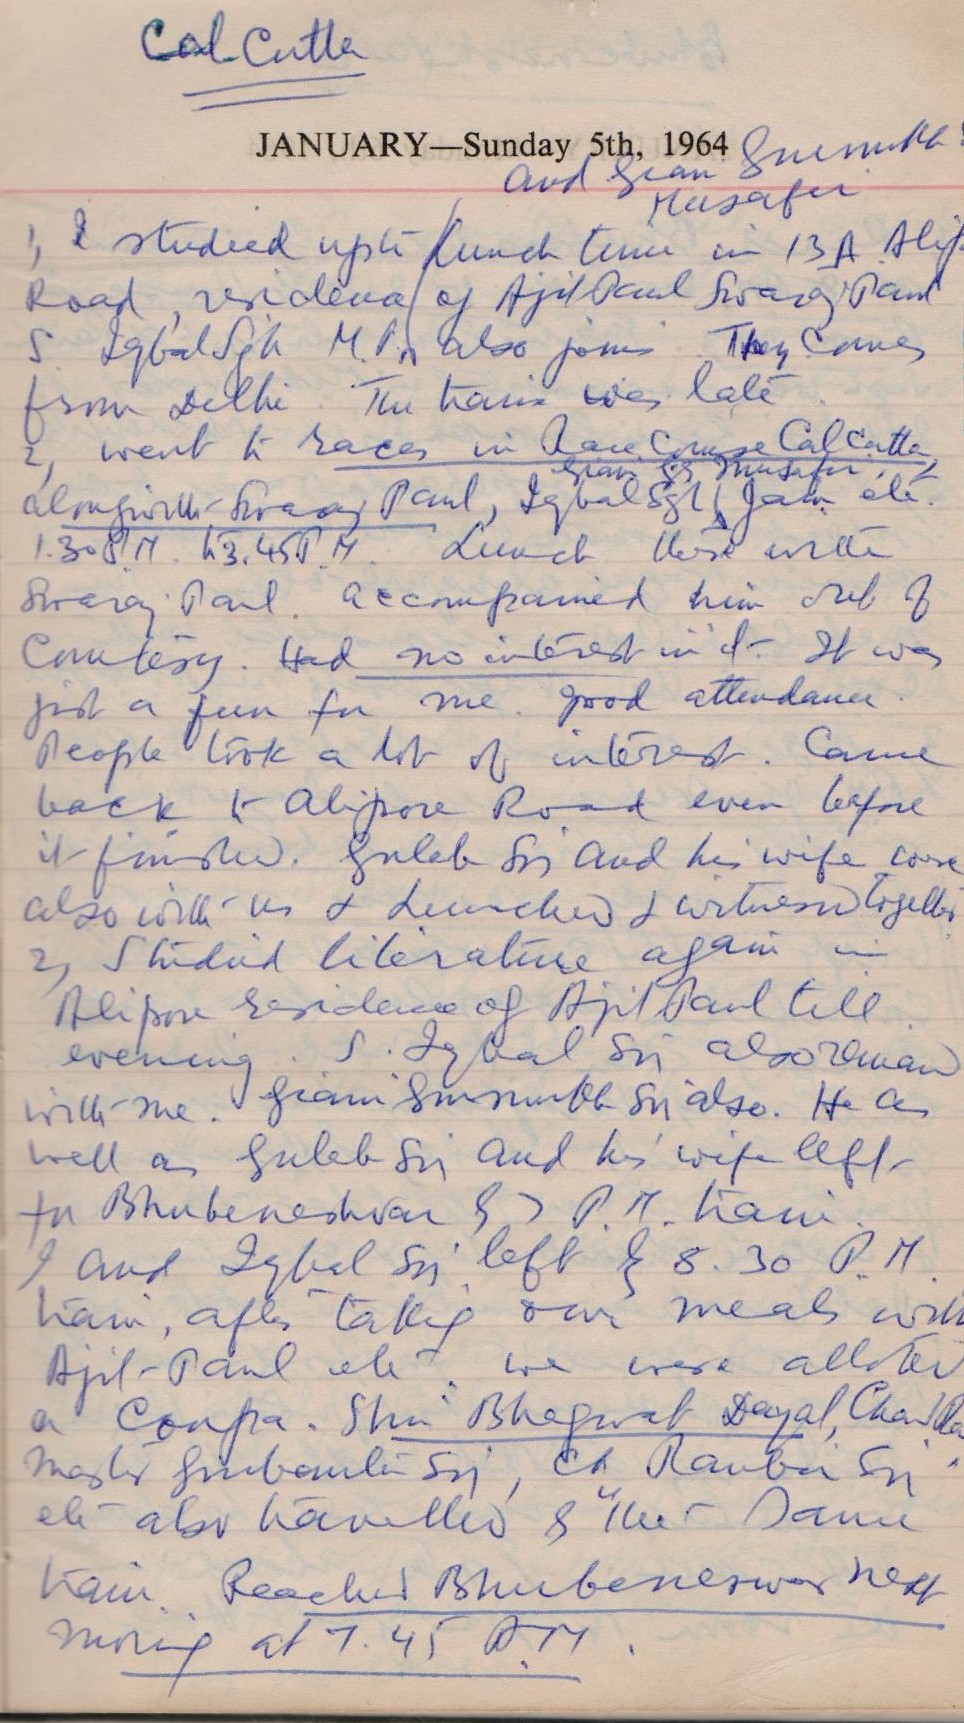 Calcutta
JANUARY—Sunday 5th, 1964
and Gian Gurmukh
Musafir
1, I studied upto Lunch time in 13A Alip
Road, residence of Ajit Paul Swaraj Paul
S. Iqbal Sgh M.P., also joins. They comes
from Delhi. The train was late.
2, went to races in Race Course Calcutta,
Gian GS Musafir,
alongwith Swaraj Paul, Iqbal Sgh, Jain etc.
1.30 P.M. to 3.45 P.M. Lunch there with
Swaraj Paul. accompanied him out of
Courtesy. Had no interest in it. It was
just a fun for me. good attendance.
People took a lot of interest. Came
back to Alipore Road even before
it finished. Gulab Sgh and his wife were
also with us & Lunched & witnessed together
2, Studied literature again in
Alipore residence of Ajit Paul till
evening. S. Iqbal Sgh also remained
with me. Giani Gurmukh Sgh also. He as
well as Gulab Sgh and his wife left
for Bhubeneshwar by 7 P.M. train.
I and Iqbal Sgh left by 8.30 P.M.
train, after taking our meals with
Ajit Paul etc. we were allotted
a Coupa. Shri Bhagwat Dayal, Chand Ra
Master Gurbanta Sgh, Ch Ranbir Sgh
etc also travelled by the same
train. Reached Bhubeneswar next
morning at 7.45 A.M.